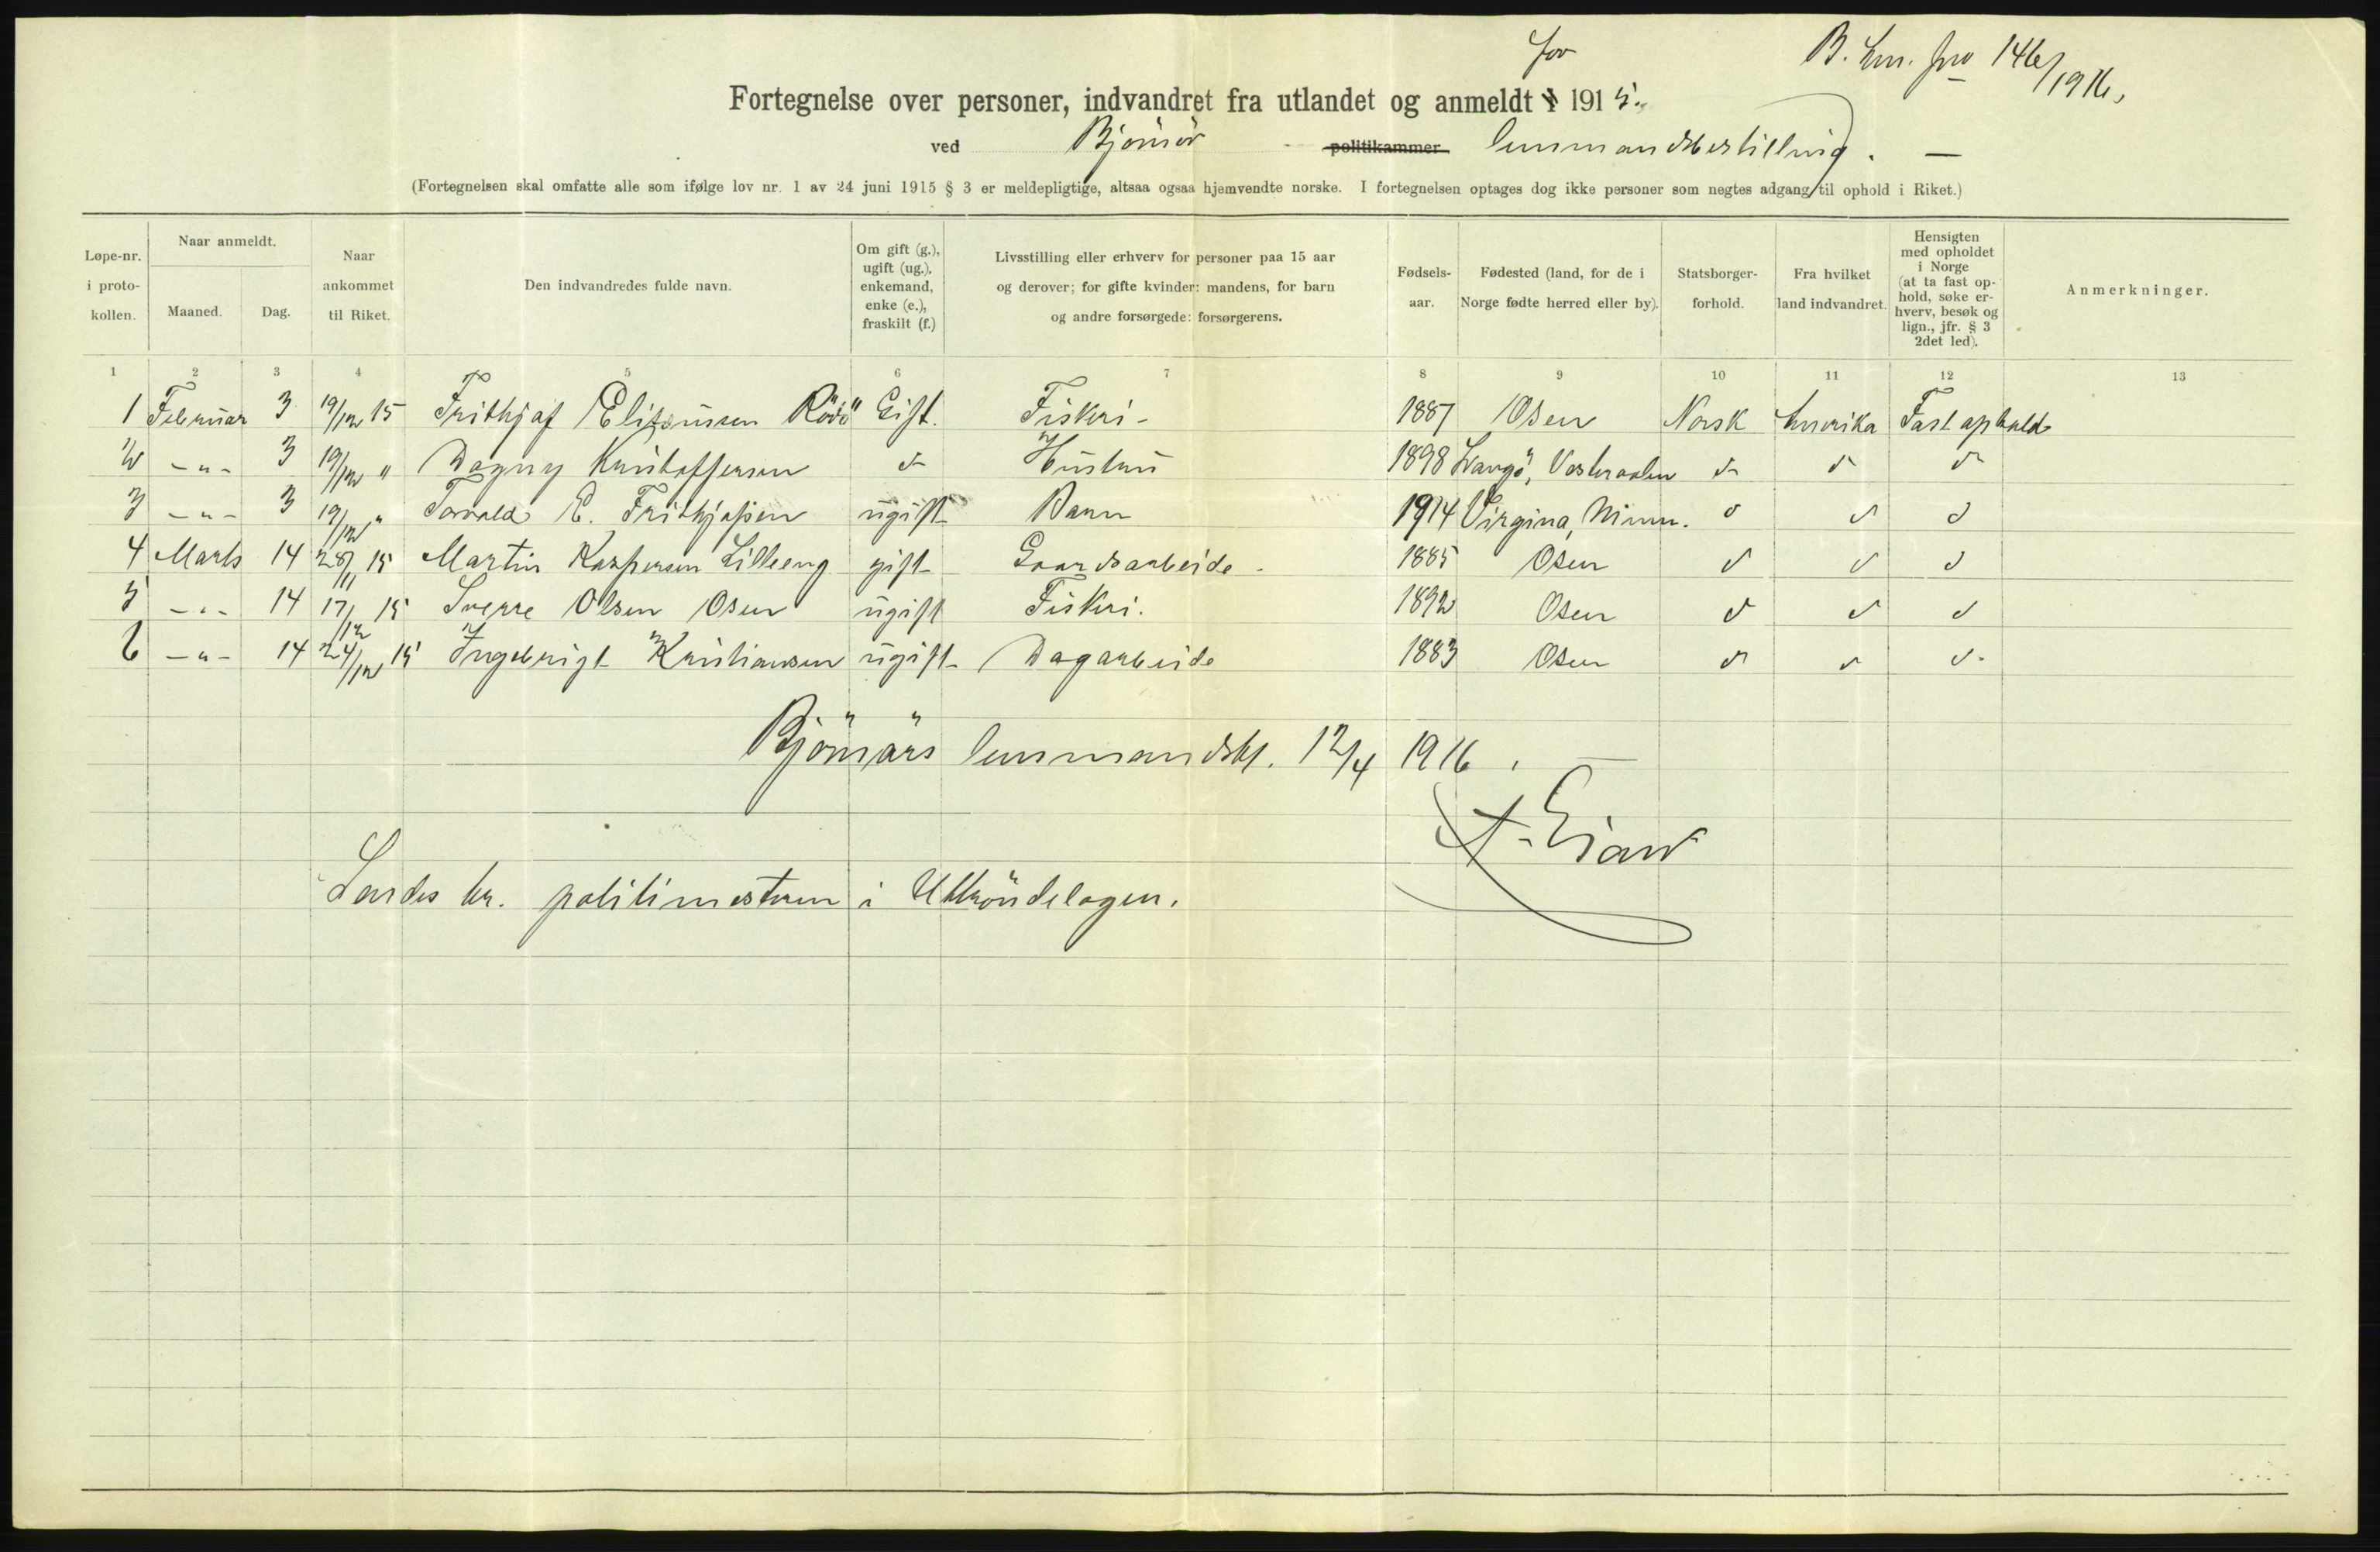 for
B. Lm. jno 146/1916,
Fortegnelse over personer, indvandret fra utlandet og anmeldt i 1915.
ved Bjørnør politikammer lensmandsbestilling. —
(Fortegnelsen skal omfatte alle som ifølge lov nr. 1 av 24 juni 1915 § 3 er meldepligtige, altsaa ogsaa hjemvendte norske. I fortegnelsen optages dog ikke personer som negtes adgang til ophold i Riket.)
Løpe-nr. i proto-kollen. Naar anmeldt. Maaned. Dag. Naar ankommet til Riket. Den indvandredes fulde navn. Om gift (g.), ugift (ug.), enkemand, enke (e.), fraskilt (f.) Livsstilling eller erhverv for personer paa 15 aar og derover; for gifte kvinder: mandens, for barn og andre forsørgede: forsørgerens. Fødsels-aar. Fødested (land, for de i Norge fødte herred eller by). Statsborger-forhold. Fra hvilket land indvandret. Hensigten med opholdet i Norge (at ta fast op-hold, søke er-hverv, besøk og lign., jfr. § 3 2det led). Anmerkninger.
1 2 3 4 5 6 7 8 9 10 11 12 13
1 Februar 3 19/12 15 Frithjof Eliseussen Rödö Gift. Fiskeri - 1887 Osen Norsk Amerika Fast ophold
2 - " - 3 19/12 " Dagny Kristoffersen d Hustru 1898 Langö, Vesteraalen d d d
3 - " - 3 19/12 " Torvald E. Frithjofsen ugift Barn 1914 Virgina, Minn. d d d
4 Marts 14 28/11 15 Martin Kaspersen Lilleeng gift Gaardsarbeide - 1885 Osen d d d
5 - " - 14 17/12 15 Sverre Olsen Osen ugift Fiskeri. 1892 Osen d d d
6 - " - 14 24/12 15 Ingebrigt Kristiansen ugift Dagarbeide 1883 Osen d d d
Bjönörs lensmandsbt. 12/4 1916.
Sendes hr. politimesteren i Uttröndelagen.